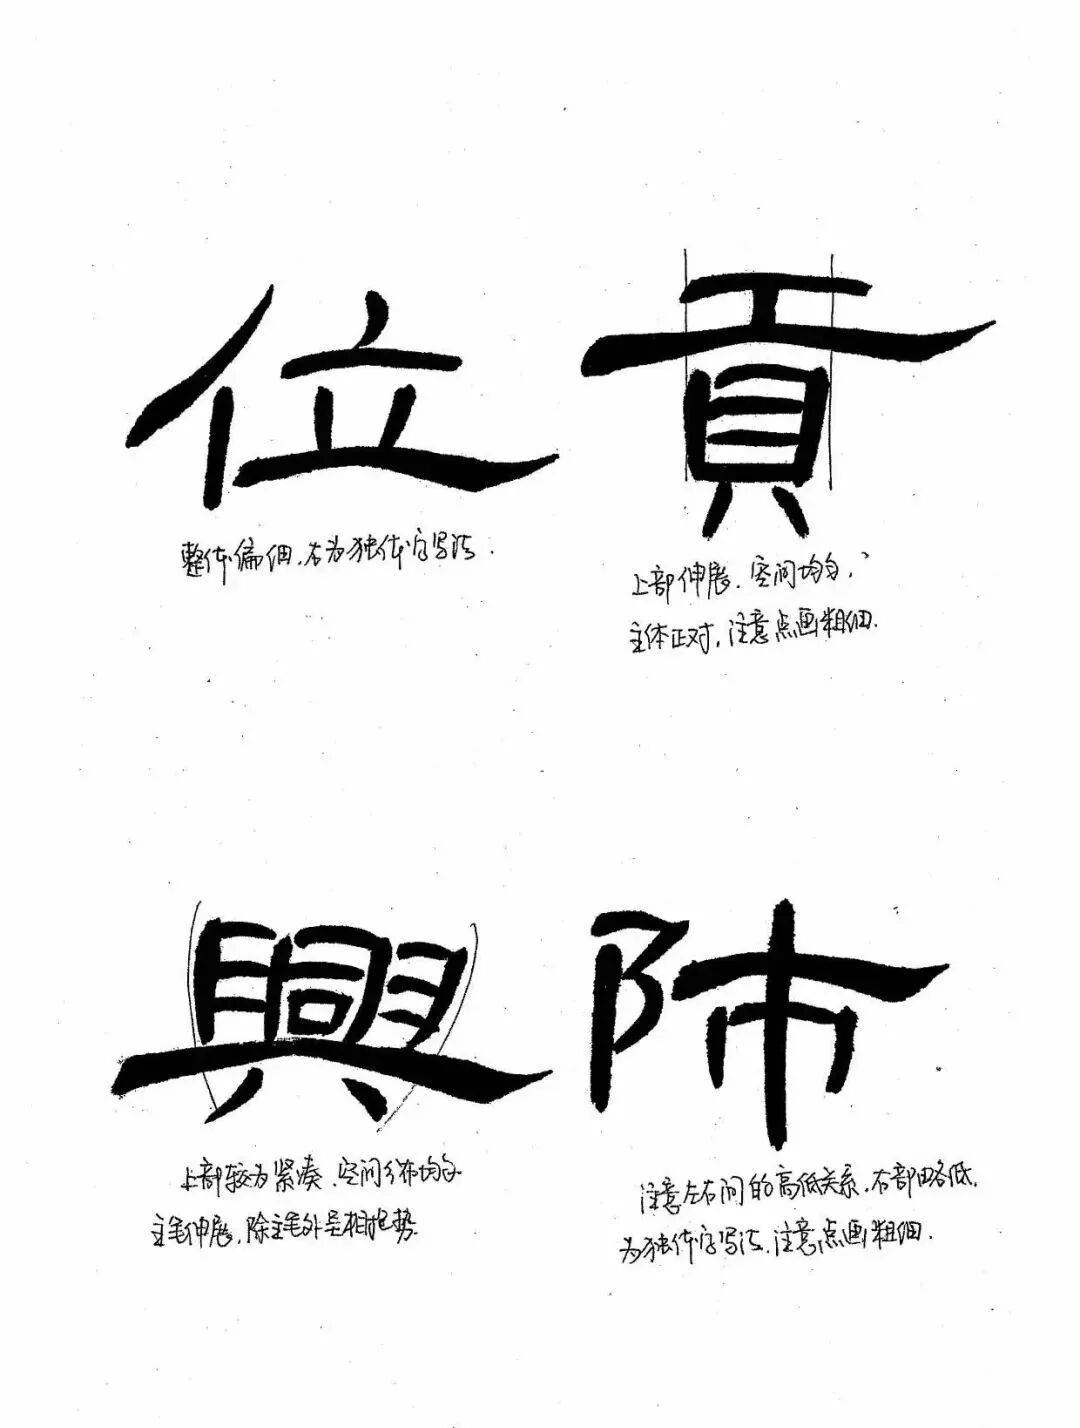 位 貢
整体偏细，右为独体字写法.
上部伸展、空间均匀，
主体正对，注意点画粗细.
興 阠
上部较为紧凑、空间分布均匀
主笔伸展，除主笔外呈相抱势.
注意左右间的高低关系，右部略低，
为独体字写法，注意点画粗细.